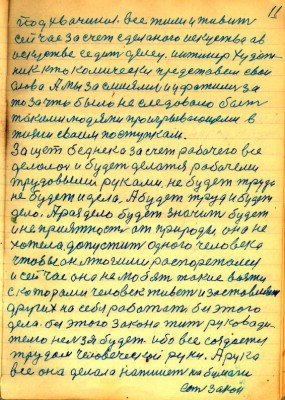 11
подхвачиния. все жили и живит
сейчас за счет сделаного искуства а в
искустве сидит делец. интимер худож
ник кто комически представем свои
слова А мы засмиями и ухатимы за
то за что было не следовало быт
такими людями проигрывающеми в
жизни своим поступкам.
За щет беднека за счет рабочего все
делолос и будет делатся рабочеми
трудовыми руками. не будет труда
не будет и дела. А будет труд и будет
дело. А раз дело будет значит будет
и не приятность от природы, она не
хотела допустит одного человека
чтобы он многими распорежался
и сейчас она не любит такие взяти
с которами человек живет и заставляет
других на себя работат бы этого
дела. бы этого закона жит руковади
тело нелзя будет. ибо все создается
трудом человеческой руки. А рука
все она делала напишет на бумаги
сот закон